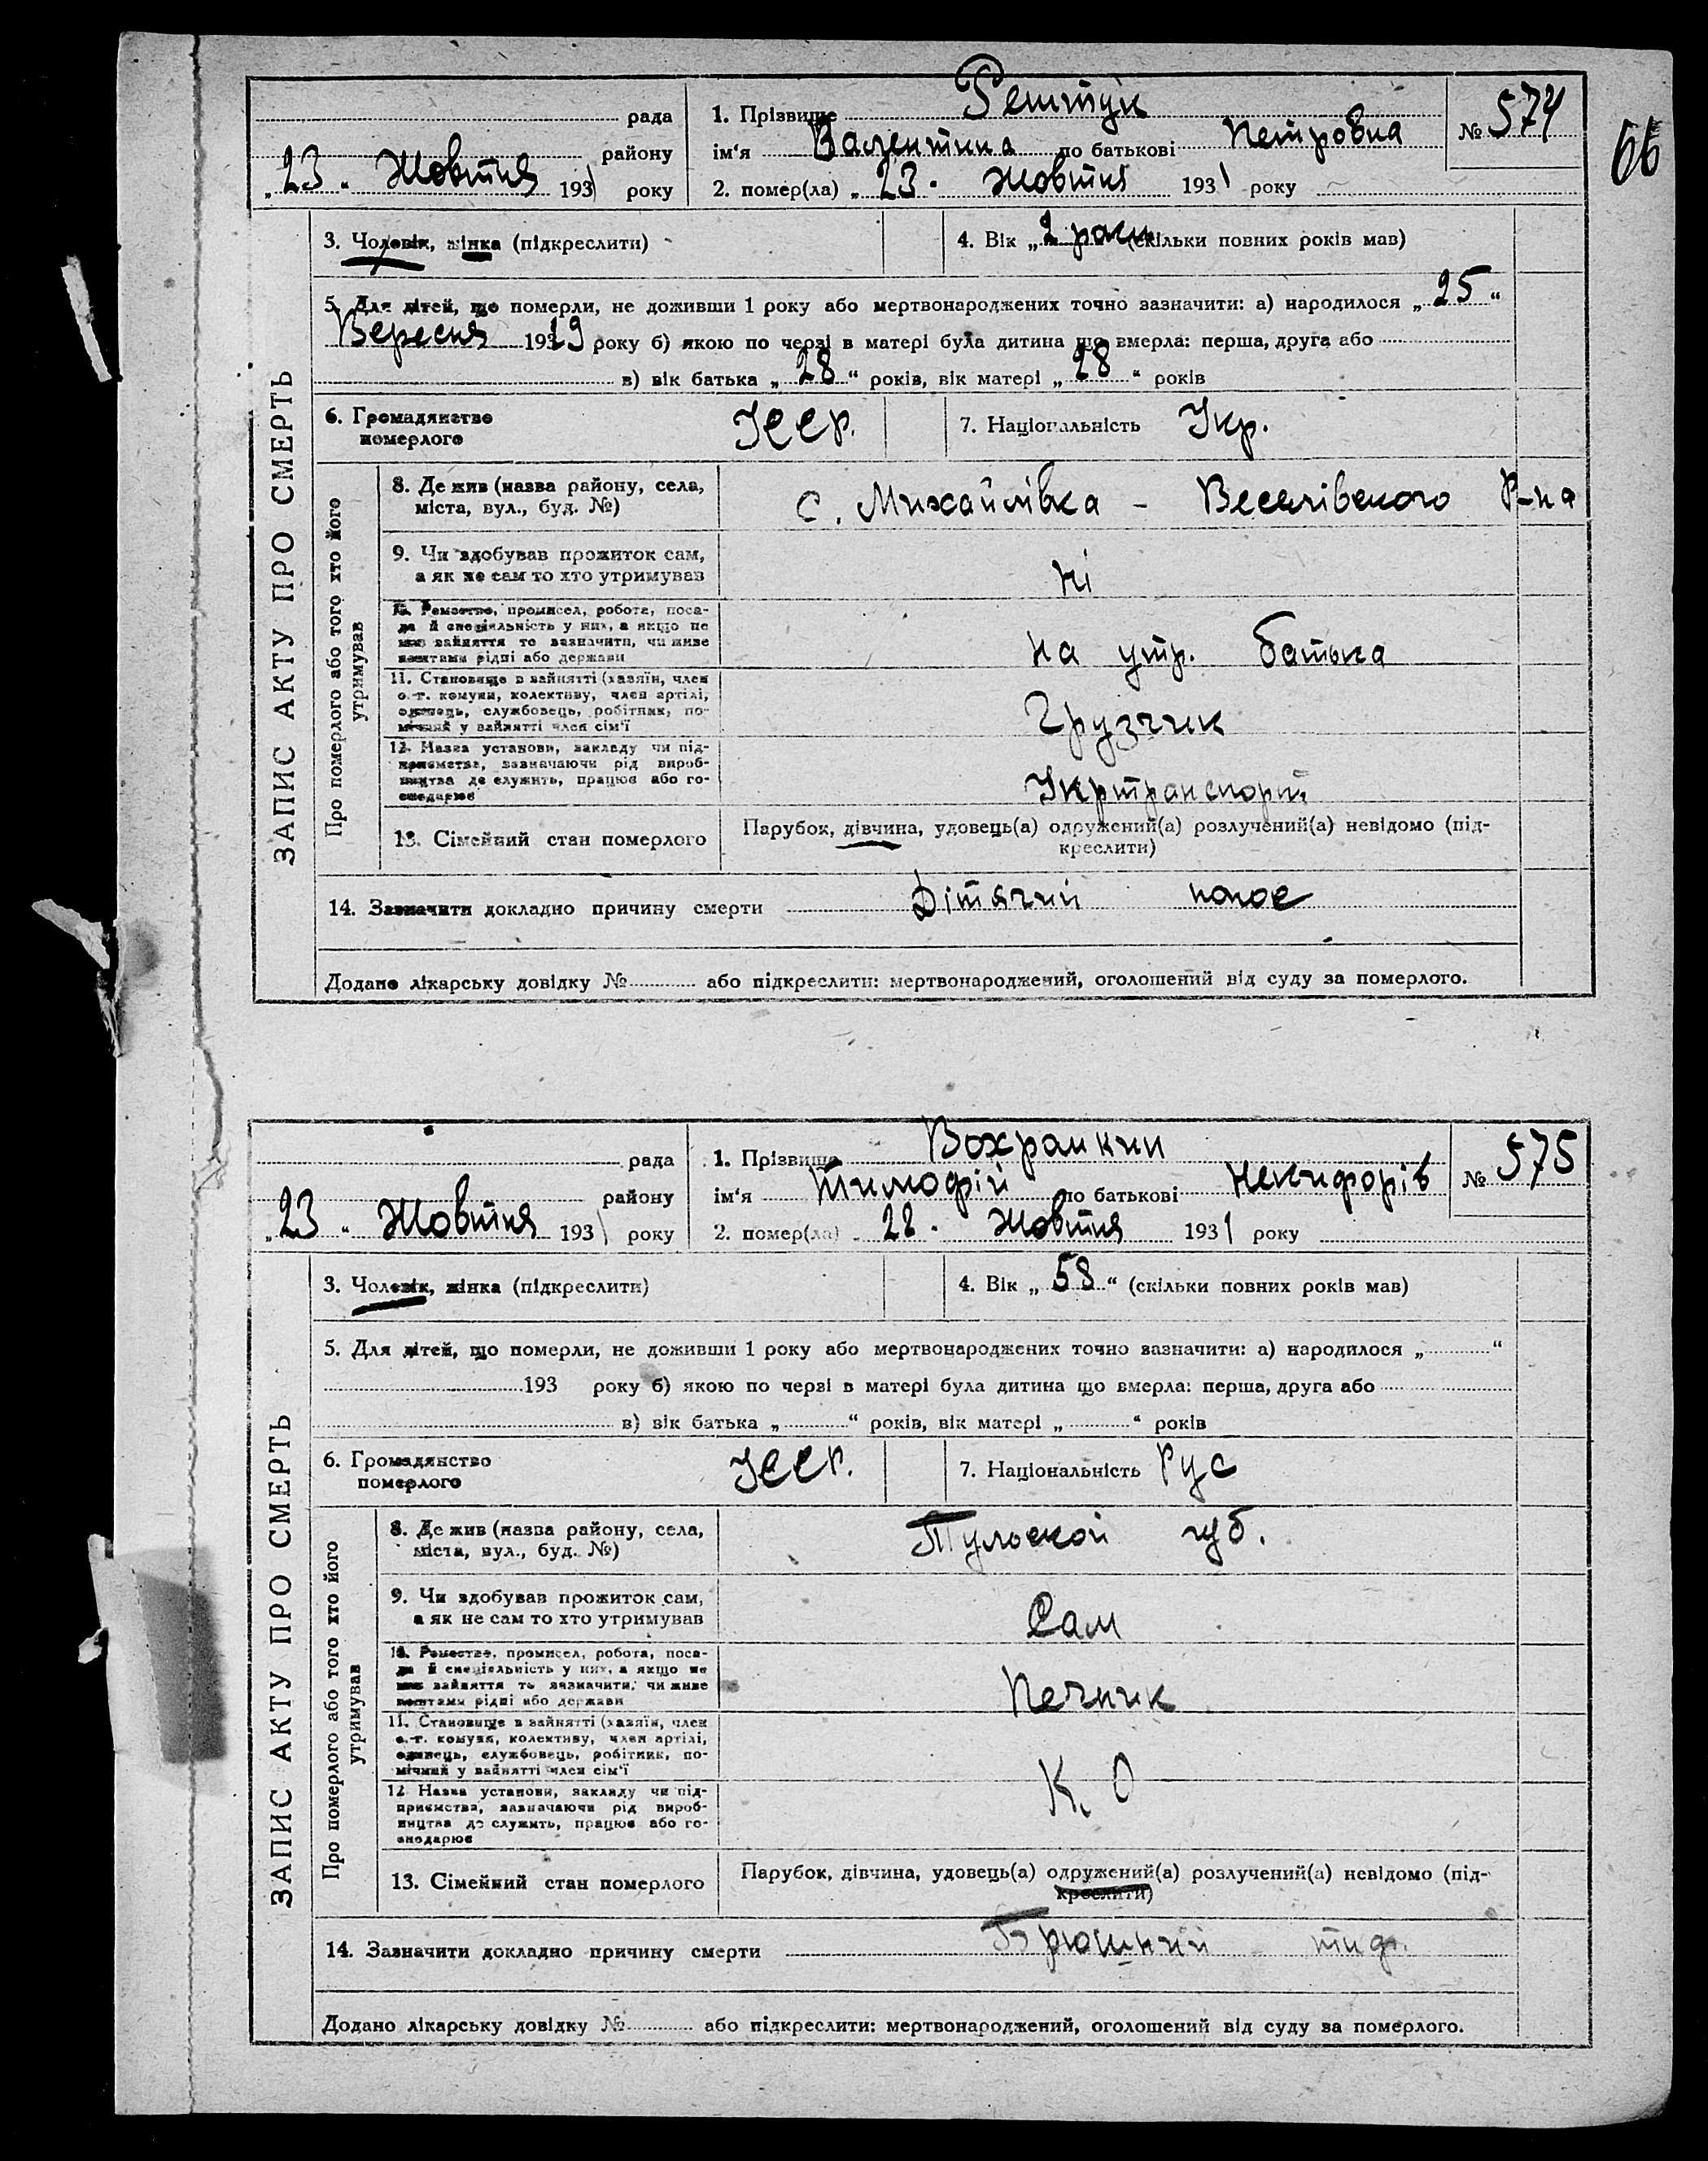 66
ЗАПИС АКТУ ПРО СМЕРТЬ
рада
району
„23“ Жовтня 1931 року
1. Прізвище Рештук
ім'я Валентина по батькові Петровна
2. помер(ла) „23“ Жовтня 1931 року
№ 574
3. Чоловік, жінка (підкреслити)
4. Вік „2 роки“ (скільки повних років мав)
5. Для дітей, що померли, не доживши 1 року або мертвонароджених точно зазначити: а) народилося „25“
Вересня 1929 року б) якою по черзі в матері була дитина що вмерла: перша, друга або
в) вік батька „28“ років, вік матері „28“ років
6. Громадянство
померлого
УССР.
7. Національність Укр.
Про померлого або того хто його
утримував
8. Де жив (назва району, села,
міста, вул., буд. №)
с. Михайлівка – Веселівського Р-на
9. Чи здобував прожиток сам,
а як не сам то хто утримував
ні
10. Ремество, промисел, робота, поса-
да й спеціяльність у них, а якщо не
має зайняття то зазначити, чи живе
коштами рідні або держави
на утр. батька
11. Становище в зайнятті (хазяїн, член
с.-г. комуни, колективу, член артілі,
одинець, службовець, робітник, по-
мічний у зайнятті член сім'ї
Грузчик
12. Назва установи, закладу чи під-
приємства, зазначаючи рід вироб-
ництва де служить, працює або го-
сподарює
Укртранспорт
13. Сімейний стан померлого
Парубок, дівчина, удовець(а) одружений(а) розлучений(а) невідомо (під-
креслити)
14. Зазначити докладно причину смерти Дітячий понос
Додано лікарську довідку № або підкреслити: мертвонароджений, оголошений від суду за померлого.
ЗАПИС АКТУ ПРО СМЕРТЬ
рада
району
„23“ Жовтня 1931 року
1. Прізвище Вохрамкин
ім'я Тимофій по батькові Некифорів
2. помер(ла) „22“ Жовтня 1931 року
№ 575
3. Чоловік, жінка (підкреслити)
4. Вік „58“ (скільки повних років мав)
5. Для дітей, що померли, не доживши 1 року або мертвонароджених точно зазначити: а) народилося „ “
193 року б) якою по черзі в матері була дитина що вмерла: перша, друга або
в) вік батька „ “ років, вік матері „ “ років
6. Громадянство
померлого
УССР.
7. Національність Рус
Про померлого або того хто його
утримував
8. Де жив (назва району, села,
міста, вул., буд. №)
Тульской губ.
9. Чи здобував прожиток сам,
а як не сам то хто утримував
Сам
10. Ремество, промисел, робота, поса-
да й спеціяльність у них, а якщо не
має зайняття то зазначити, чи живе
коштами рідні або держави
Печник
11. Становище в зайнятті (хазяїн, член
с.-г. комуни, колективу, член артілі,
одинець, службовець, робітник, по-
мічний у зайнятті член сім'ї
12. Назва установи, закладу чи під-
приємства, зазначаючи рід вироб-
ництва де служить, працює або го-
сподарює
К. О
13. Сімейний стан померлого
Парубок, дівчина, удовець(а) одружений(а) розлучений(а) невідомо (під-
креслити)
14. Зазначити докладно причину смерти Брюшний тиф.
Додано лікарську довідку № або підкреслити: мертвонароджений, оголошений від суду за померлого.